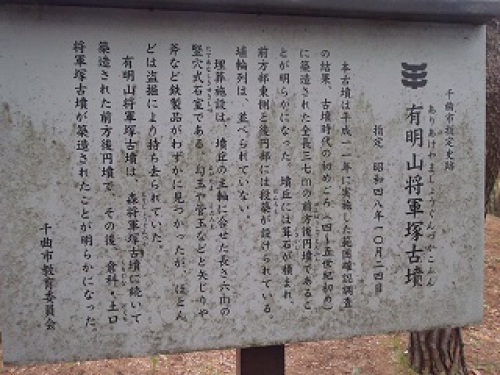 千曲市指定史跡
ありあけやましょうぐんづかこふん
有明山将軍塚古墳
指定 昭和四八年一〇月二四日
本古墳は平成一一年に実施した範囲確認調査
の結果、古墳時代の初めごろ(四〜五世紀初め)
に築造された全長三七mの前方後円墳であるこ
とが明らかになった。墳丘には葺石が積まれ、
前方部東側と後円部には段築が設けられている。
埴輪列は、並べられていない。
埋葬施設は、墳丘の主軸に合せた長さ六mの
竪穴式石室である。勾玉や管玉などと矢じりや
斧など鉄製品がわずかに見つかったが、ほとん
どは盗掘により持ち去られていた。
有明山将軍塚古墳は、森将軍塚古墳に続いて
築造された前方後円墳で、その後、倉科・土口
将軍塚古墳が築造されたことが明らかになった。
千曲市教育委員会